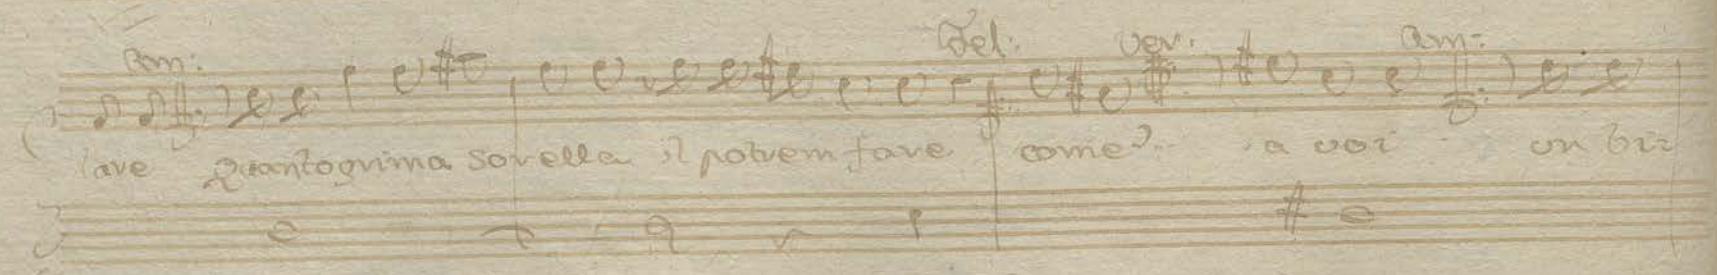 Am: Del: ver: Am:
lare quantoprima sorella il potrem fare come? a voi un bir